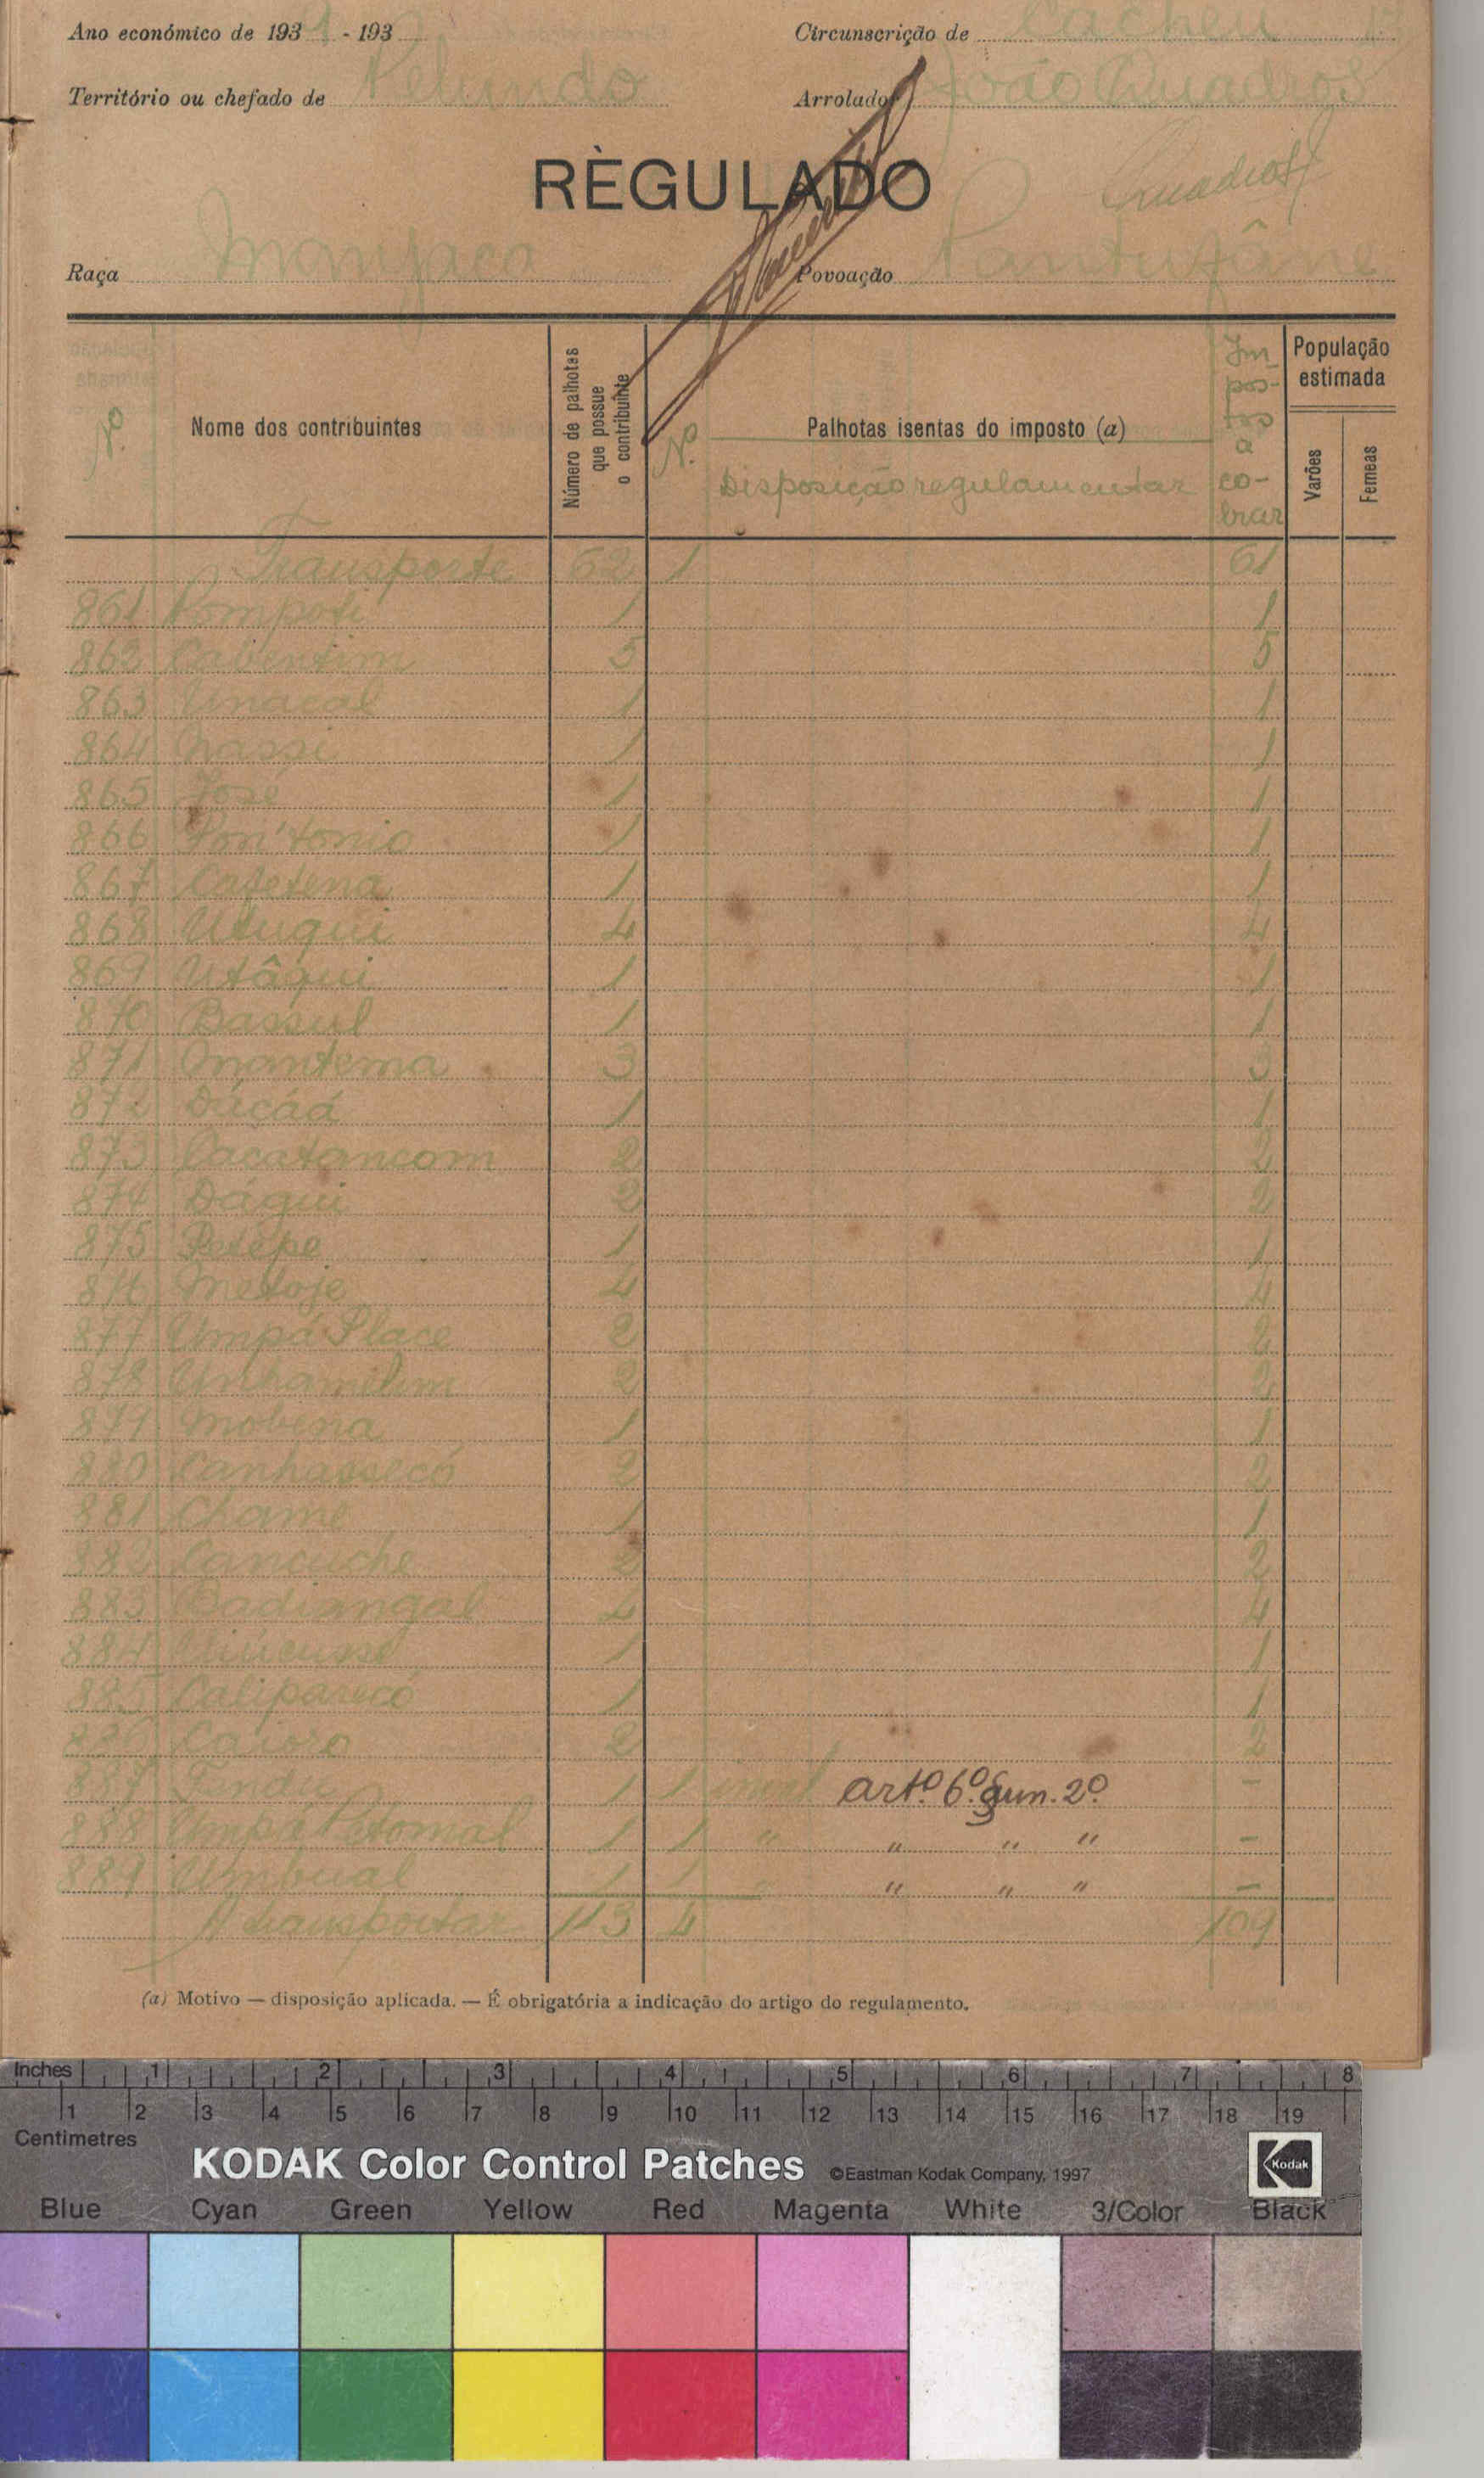 Ano económico de 1931 - 193
Circunscrição de Cacheu
Território ou chefado de Pelundo
Arrolador João Quadros
RÈGULADO
Quadros
Raça Manjaco
Povoação
Nº
Nome dos contribuintes
Número de palhotas que possue o contribuinte
Nº
Palhotas isentas do imposto (a)
Disposição regulamentar
Im-pos-tos a co-brar
População estimada
Varões
Femeas
Transporte 62 1 61
861 Pompoti 1 1
862 Cabentim 5 5
863 Unacal 1 1
864 Nassi 1 1
865 José 1 1
866 Pon'tonio 1 1
867 Cafetena 1 1
868 Utuqui 4 4
869 Utâqui 1 1
870 Bassul 1 1
871 Mantema 3 3
872 Ducáá 1 1
873 Cacatancom 2 2
874 Dáqui 2 2
875 Petépe 1 1
876 Metoje 4 4
877 Umpá Place 2 2
878 2 2
879 Mobena 1 1
880 Canhassecó 2 2
881 Chame 1 1
882 Cancuche 2 2
883 Badiangal 4 4
884 1 1
885 1 1
886 Caioro 2 2
887 1 1 artº 6º § un. 2º -
888 1 1 " " " " -
889 Umbual 1 1 " " " " -
A transportar 113 4 109
(a) Motivo — disposição aplicada. — É obrigatória a indicação do artigo do regulamento.
Inches 1 2 3 4 5 6 7 8
1 2 3 4 5 6 7 8 9 10 11 12 13 14 15 16 17 18 19
Centimetres
KODAK Color Control Patches ©Eastman Kodak Company, 1997 Kodak
Blue Cyan Green Yellow Red Magenta White 3/Color Black